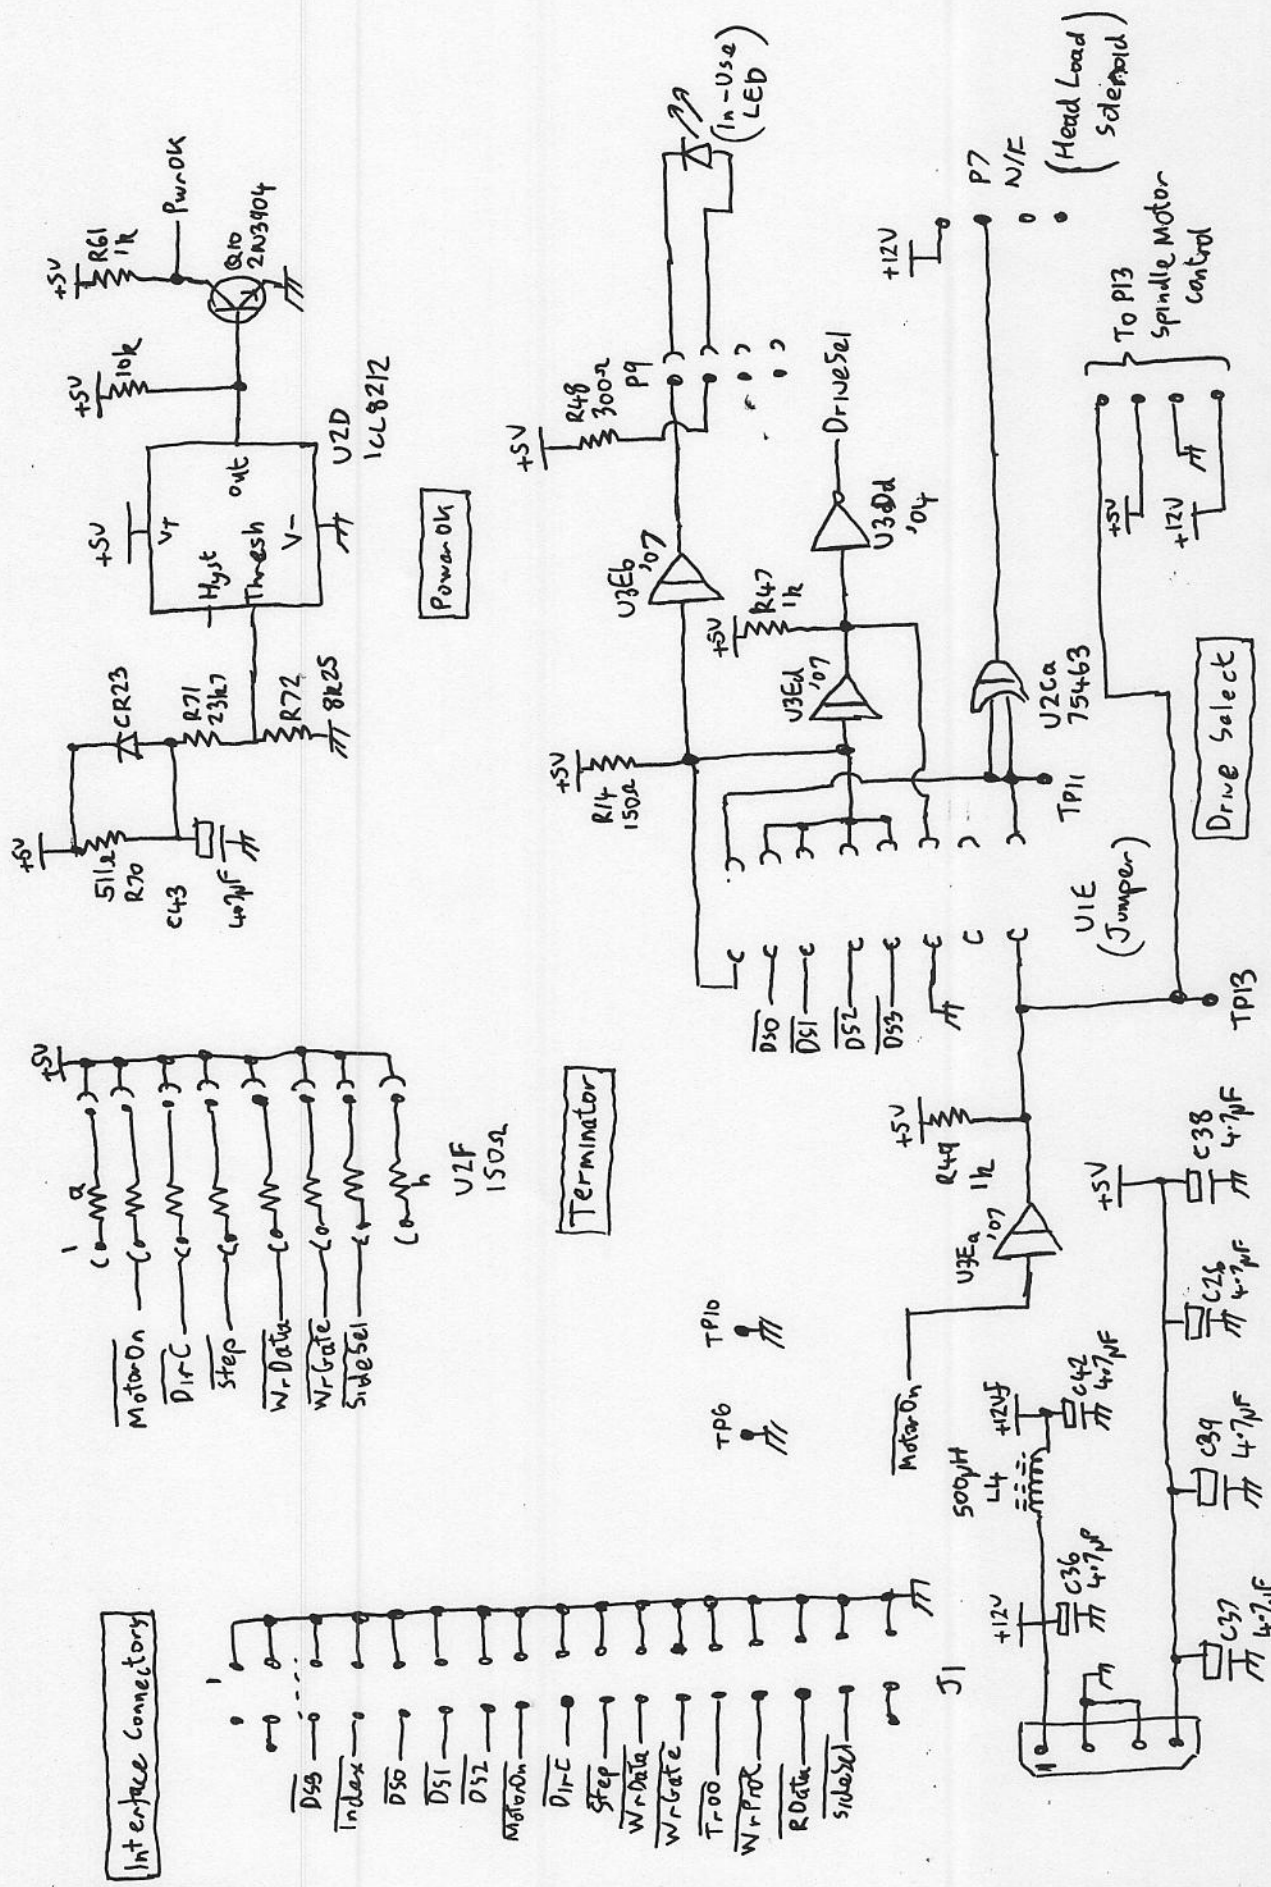 Interface Connectors
1
DS3
Index
DS0
DS1
DS2
MotorOn
DirC
Step
WrData
WrGate
Tr00
WrProt
RData
SideSel
J1
+5V
1
a
MotorOn
DirC
Step
WrData
WrGate
SideSel
h
U2F
150Ω
Terminator
+5V
511Ω
R70
C43
4.7µF
CR23
R71
23k7
R72
8k25
+5V
V+
Hyst
Thresh
Out
V-
U2D
ICL8212
+5V
10k
+5V
R61
1k
PwrOK
Q10
2N3904
PowerOK
TP6
TP10
MotorOn
U3Ea
'07
+5V
R49
1k
TP13
DS0
DS1
DS2
DS3
U1E
(Jumper)
TP11
+5V
R14
150Ω
U3Eb
'07
U3Ed
'07
+5V
R47
1k
U3Dd
'04
DriveSel
+5V
R48
300Ω
P9
(In-Use
LED)
U2Ca
75463
+12V
P7
N/F
(Head Load
Solenoid)
+5V
+12V
To P13
Spindle Motor
Control
Drive Select
1
+12V
C36
4.7µF
500µH
L4
+12Vf
C42
4.7µF
C37
4.7µF
C39
4.7µF
C26
4.7µF
+5V
C38
4.7µF